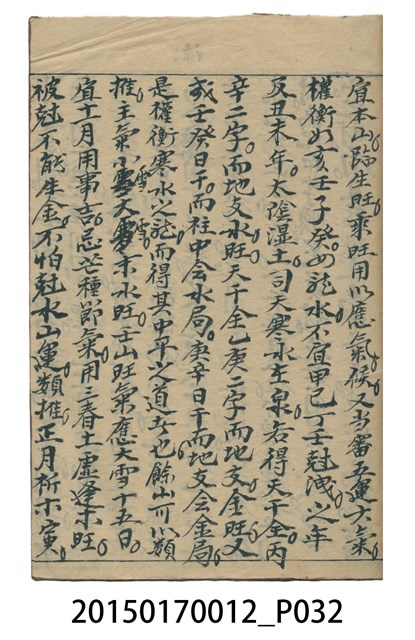 宜本山臨生旺乘旺用以應氣候又当審五運六氣
權衡如亥壬子癸四龍水不宜甲巳丁壬尅洩之年
及丑未年太陰湿土司天寒水在泉若得天干全丙
辛二字而地支水旺天干全乙庚二字而地支金旺又
或壬癸日干而柱中会水局庚辛日干而地支会金局
是權衡寒水之龍而得其中平之道者也餘山可以類
推主氣小雪大雪末水旺壬山旺氣應大雪十五日
宜十一月用事吉忌芒種節氣用三春土虛逢木旺
被尅不能生金不怕尅水山運類推正月析木寅
20150170012_P032